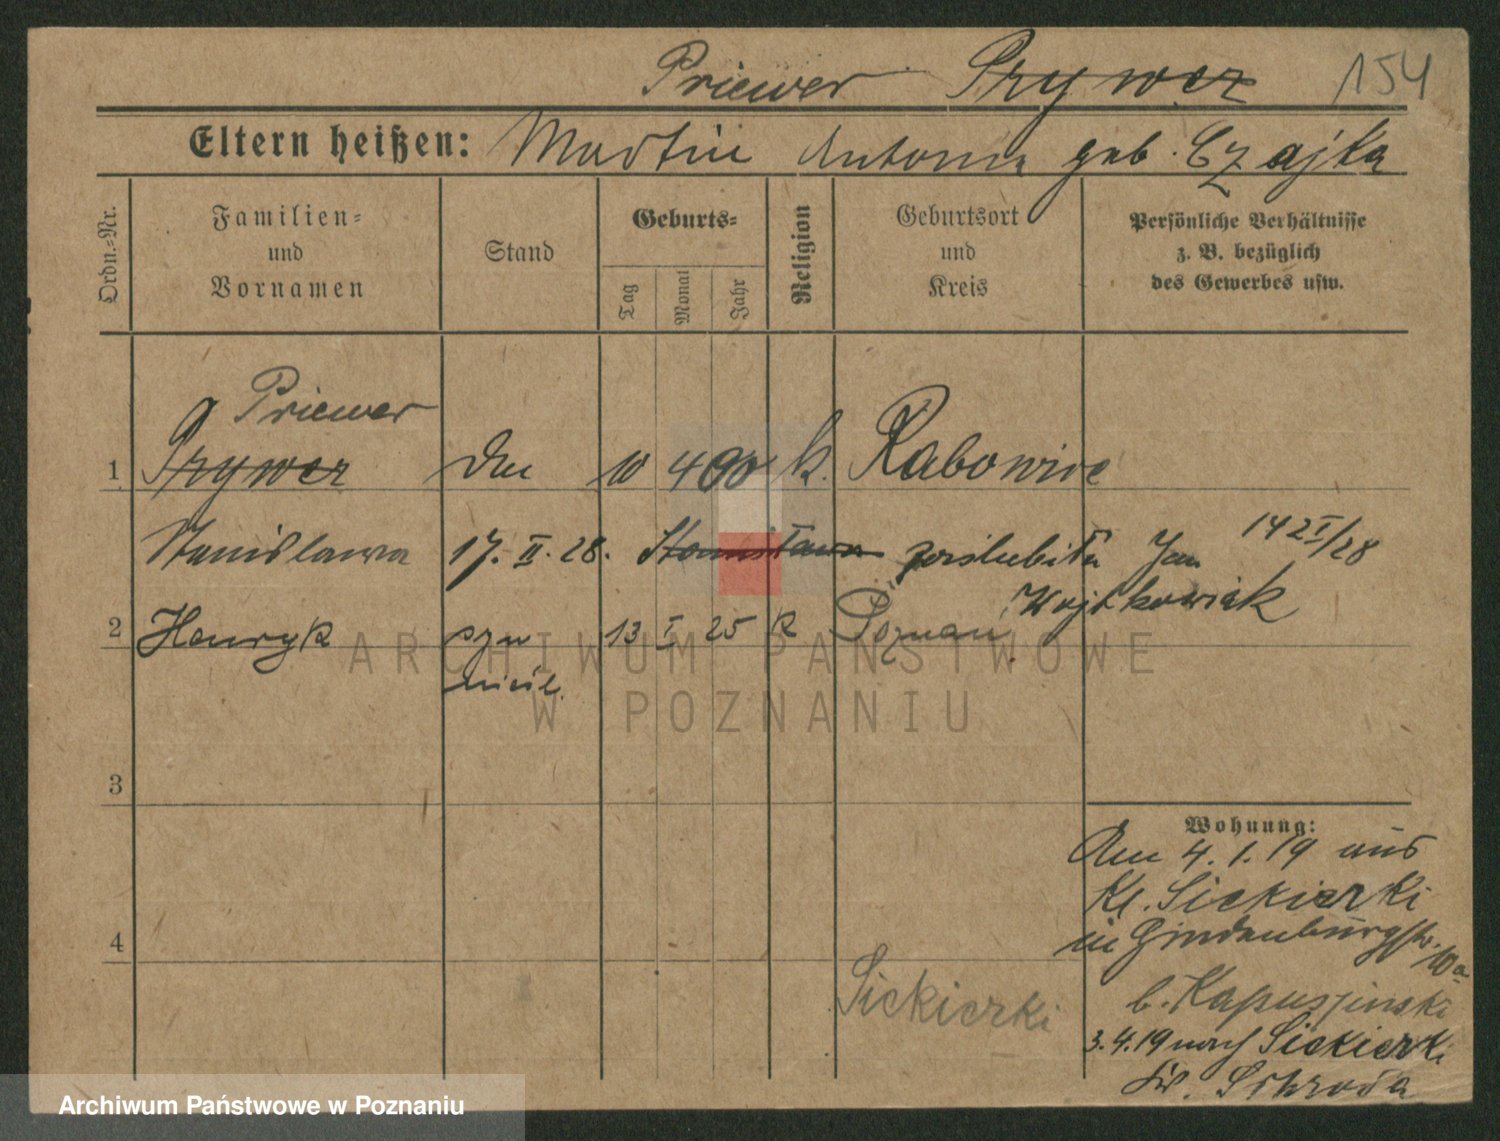 Priewer Przywer 154
Eltern heißen: Martin Antonina geb. Czajka
Ordn.-Nr.
Familien-
und
Vornamen
Stand
Geburts-
Tag
Monat
Jahr
Religion
Geburtsort
und
Kreis
Persönliche Verhältnisse
z. B. bezüglich
des Gewerbes usw.
Priewer
1 Przywer 10 4 00 k. Rabowice
Stanisława 17. II. 28. Stanisława poślubiła Jan 14 2 I/28
Wojtkowiak
2 Henryk syn 13 I 25 k Poznań
nieśl.
3
4
Siekierki
Wohnung:
Am 4.1.19 aus
Kl. Siekierki
in Hindenburgstr. 10a
b. Kapuszinski
3.4.19 nach Siekierki
Kr. Schroda
ARCHIWUM PAŃSTWOWE
W POZNANIU
Archiwum Państwowe w Poznaniu